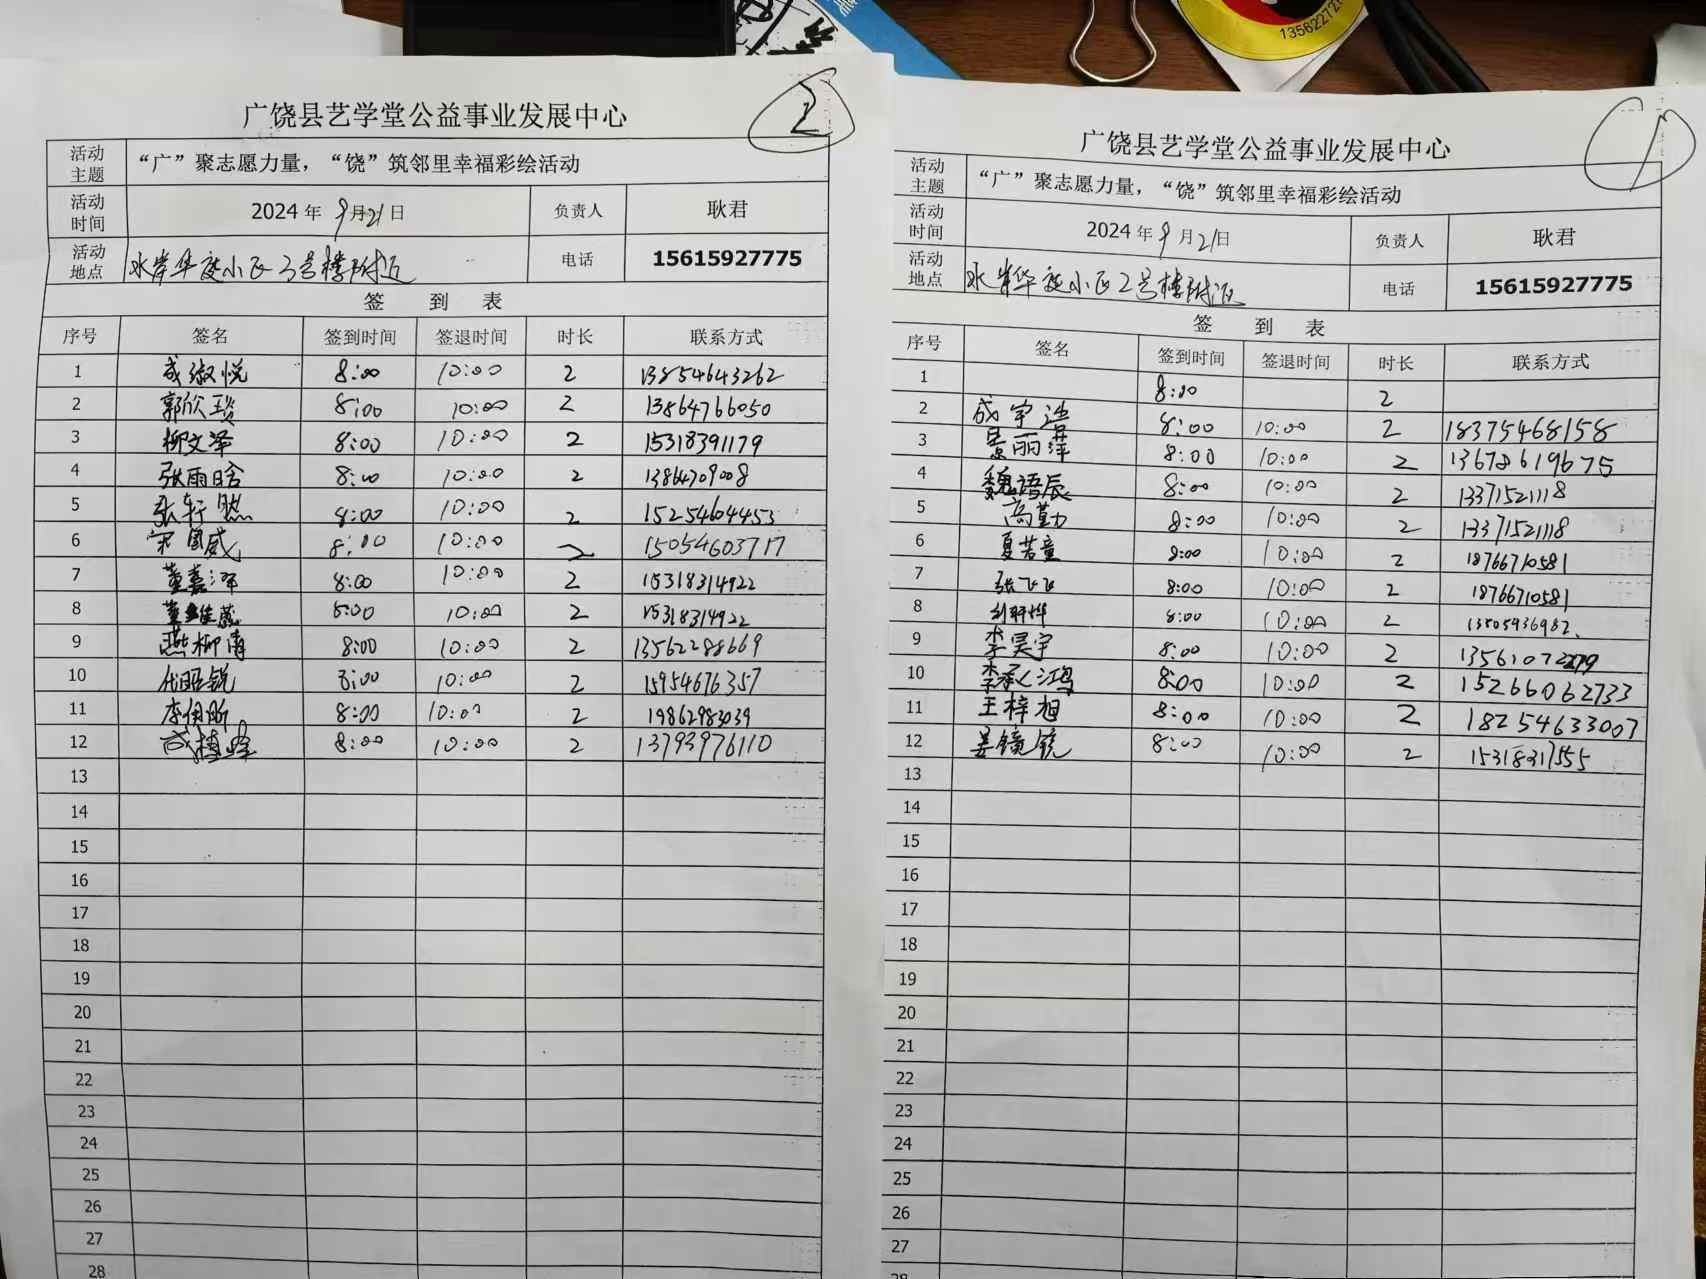 2
广饶县艺学堂公益事业发展中心
活动主题 “广”聚志愿力量，“饶”筑邻里幸福彩绘活动
活动时间 2024年9月21日 负责人 耿君
活动地点 水岸华庭小区3号楼附近 电话 15615927775
签 到 表
序号 签名 签到时间 签退时间 时长 联系方式
1 成淑悦 8:00 10:00 2 13854643262
2 郭欣琰 8:00 10:00 2 13864766050
3 柳文泽 8:00 10:00 2 15318391179
4 张雨晗 8:00 10:00 2 13864709008
5 张轩熙 8:00 10:00 2 15254604453
6 宋国威 8:00 10:00 2 15054603717
7 董嘉泽 8:00 10:00 2 15318314922
8 董维燕 8:00 10:00 2 15318314922
9 燕柳清 8:00 10:00 2 13562288669
10 代昭锐 8:00 10:00 2 15954676357
11 李伊昕 8:00 10:00 2 19862983039
12 成植峰 8:00 10:00 2 13793976110
13
14
15
16
17
18
19
20
21
22
23
24
25
26
27
28
1
广饶县艺学堂公益事业发展中心
活动主题 “广”聚志愿力量，“饶”筑邻里幸福彩绘活动
活动时间 2024年9月21日 负责人 耿君
活动地点 水岸华庭小区2号楼附近 电话 15615927775
签 到 表
序号 签名 签到时间 签退时间 时长 联系方式
1 8:00 2
2 成宇浩 8:00 10:00 2 18375468158
3 景丽萍 8:00 10:00 2 13678619675
4 魏语辰 8:00 10:00 2 13371521118
5 高勤 8:00 10:00 2 13371521118
6 夏若童 8:00 10:00 2 18766710581
7 张飞飞 8:00 10:00 2 18766710581
8 8:00 10:00 2 13505936982
9 李昊宇 8:00 10:00 2 13561072279
10 李承鸿 8:00 10:00 2 15266062733
11 王梓旭 8:00 10:00 2 18254633007
12 姜镜铳 8:00 10:00 2 15318317555
13
14
15
16
17
18
19
20
21
22
23
24
25
26
27
28